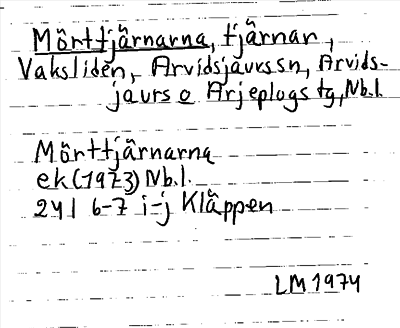 Mörttjärnarna, tjärnar,
Vaksliden, Arvidsjaurssn, Arvids-
jaurs o Arjeplogs tg, Nb.l.
Mörttjärnarna
ek (1973) Nb.l.
24I 6-7 i-j Kläppen
LM 1974